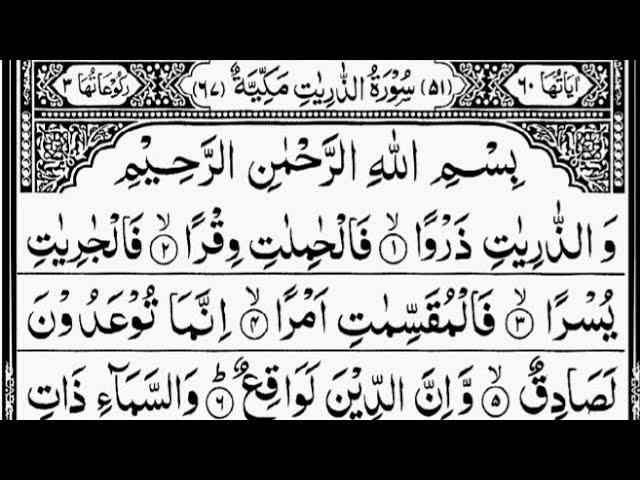 اٰيَاتُهَا ٦٠ (٥١) سُوْرَةُ الذّٰرِيٰتِ مَكِّيَّةٌ (٦٧) رُكُوْعَاتُهَا ٣
بِسْمِ اللّٰهِ الرَّحْمٰنِ الرَّحِيْمِ
وَالذّٰرِيٰتِ ذَرْوًا ۙ﴿١﴾ فَالْحٰمِلٰتِ وِقْرًا ۙ﴿٢﴾ فَالْجٰرِيٰتِ
يُسْرًا ۙ﴿٣﴾ فَالْمُقَسِّمٰتِ اَمْرًا ۙ﴿٤﴾ اِنَّمَا تُوْعَدُوْنَ
لَصَادِقٌ ۙ﴿٥﴾ وَّاِنَّ الدِّيْنَ لَوَاقِعٌ ؕ﴿٦﴾ وَالسَّمَآءِ ذَاتِ